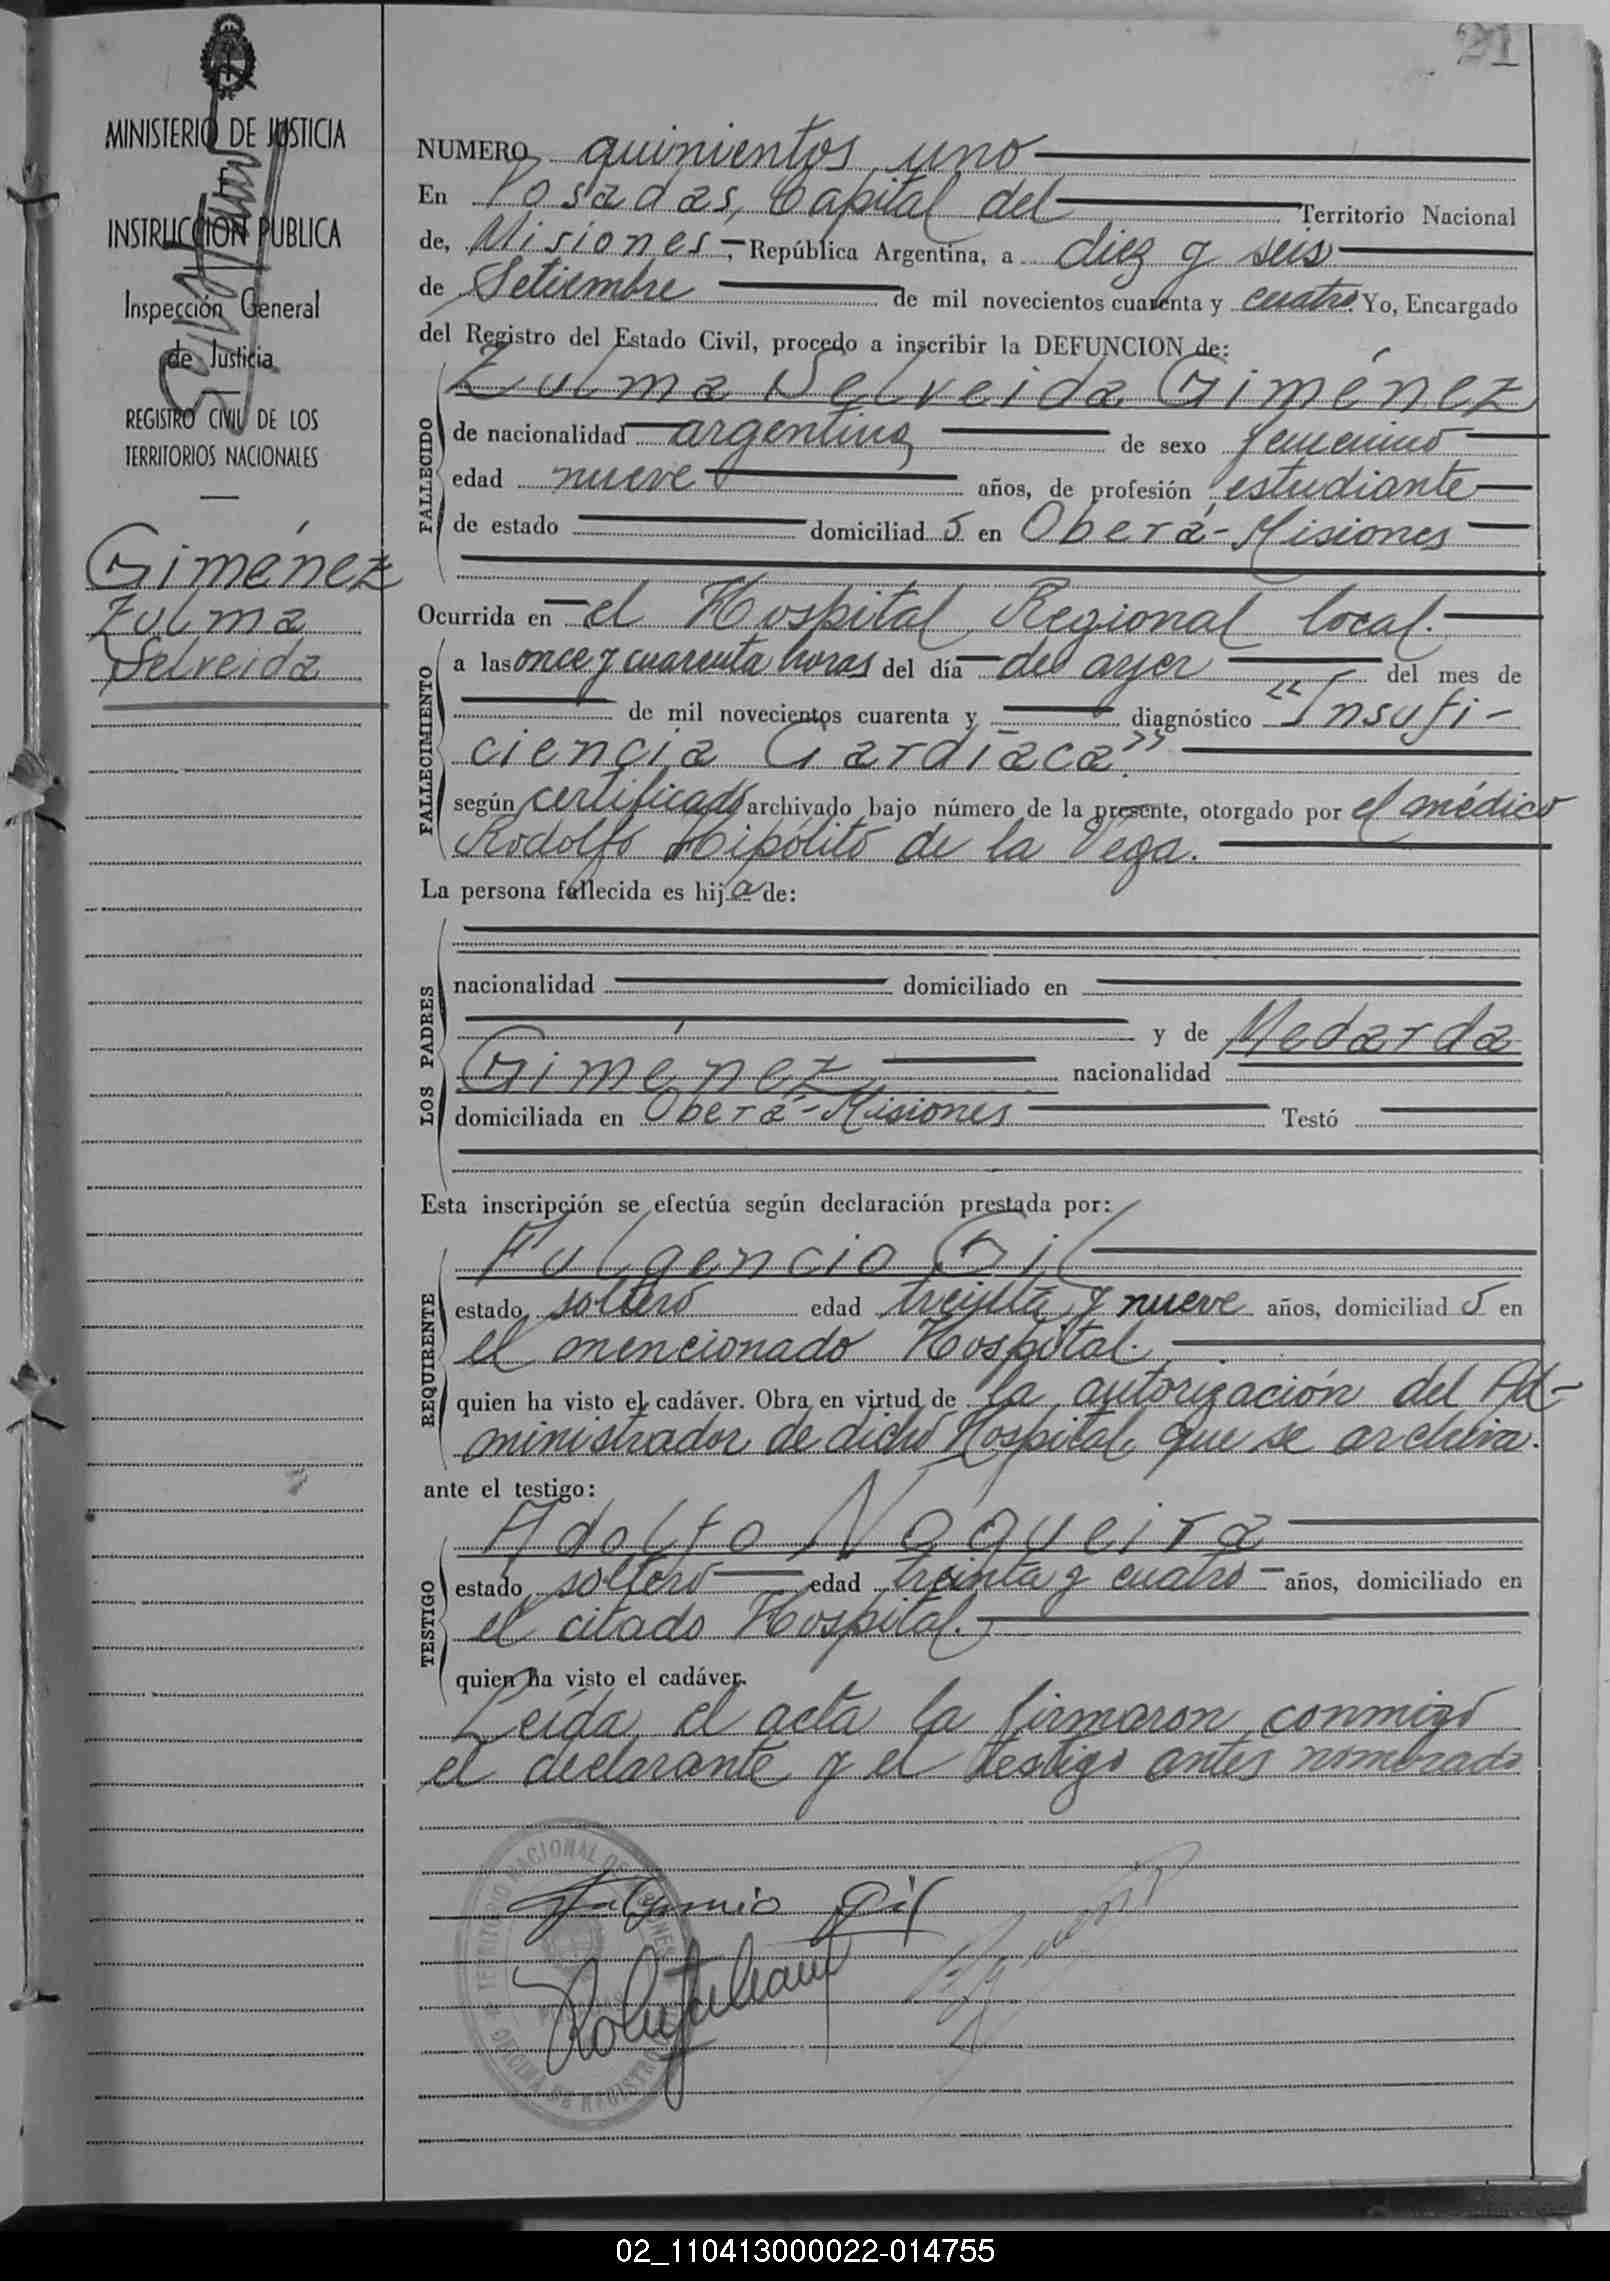 21
MINISTERIO DE JUSTICIA
INSTRUCCION PUBLICA
Inspección General
de Justicia
REGISTRO CIVIL DE LOS
TERRITORIOS NACIONALES
Giménez
Zulma
Selveida
NUMERO quinientos uno
En Posadas, Capital del Territorio Nacional
de, Misiones, República Argentina, a diez y seis
de Setiembre de mil novecientos cuarenta y cuatro. Yo, Encargado
del Registro del Estado Civil, procedo a inscribir la DEFUNCION de:
Zulma Selveida Giménez
FALLECIDO
de nacionalidad argentina de sexo femenino
edad nueve años, de profesión estudiante
de estado domiciliad o en Oberá-Misiones
Ocurrida en el Hospital Regional local.
FALLECIMIENTO
a las once y cuarenta horas del día de ayer del mes de
de mil novecientos cuarenta y diagnóstico "Insufi-
ciencia Cardíaca".
según certificado archivado bajo número de la presente, otorgado por el médico
Rodolfo Hipólito de la Vega.
La persona fallecida es hij a de:
LOS PADRES
nacionalidad domiciliado en
y de Medarda
Giménez nacionalidad
domiciliada en Oberá-Misiones Testó
Esta inscripción se efectúa según declaración prestada por:
Fulgencio Gil
REQUIRENTE
estado soltero edad treinta y nueve años, domiciliad o en
el mencionado Hospital.
quien ha visto el cadáver. Obra en virtud de la autorización del Ad-
ministrador de dicho Hospital que se archiva.
ante el testigo:
Adolfo Noqueira
TESTIGO
estado soltero edad treinta y cuatro años, domiciliado en
el citado Hospital.
quien ha visto el cadáver.
Leída el acta la firmaron conmigo
el declarante y el testigo antes nombrado
Fulgencio Gil
TERRITORIO NACIONAL DE MISIONES
OFICINA DE REGISTRO
02_110413000022-014755